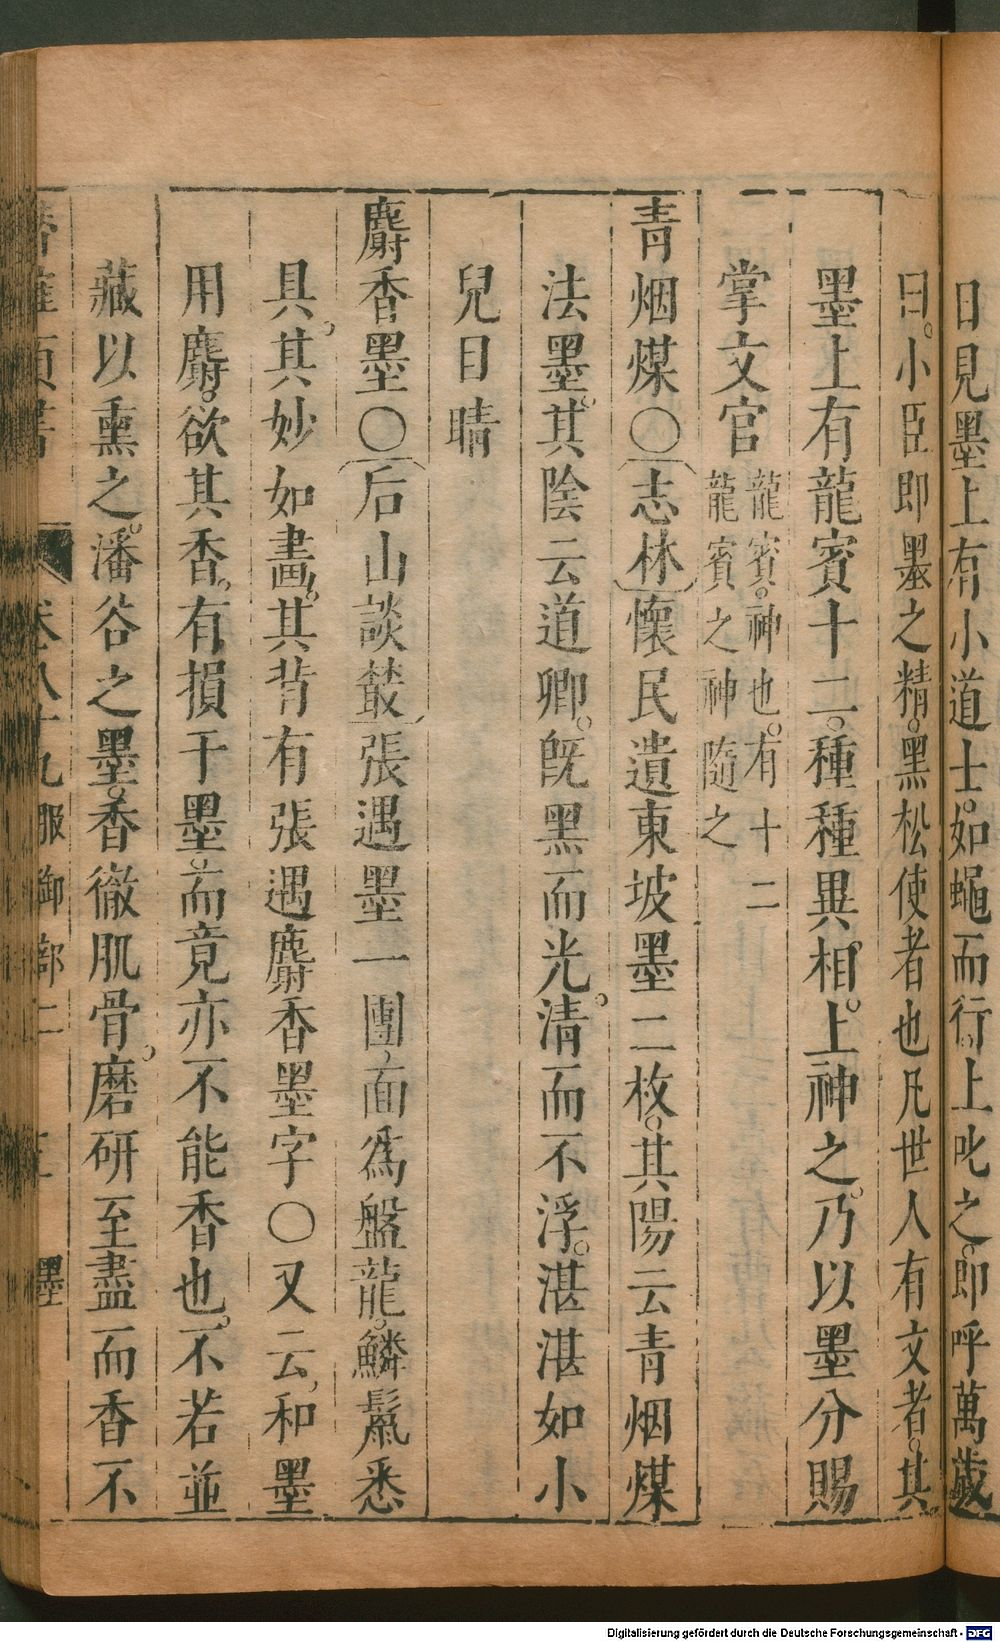 日見墨上有小道士。如蠅而行。上叱之。即呼萬歲
曰。小臣即墨之精。黑松使者也凡世人有文者。其
墨上有龍賓十二。種種異相。上神之。乃以墨分賜
掌文官
龍賓。神也。有十二
龍賓之神隨之
青烟煤〇志林懷民遺東坡墨二枚。其陽云青烟煤
法墨。其陰云道卿。旣黑而光。清而不浮。湛湛如小
兒目晴
麝香墨〇后山談叢張遇墨一團。面爲盤龍。鱗鬣悉
具。其妙如畫。其背有張遇麝香墨字〇又云。和墨
用麝。欲其香。有損于墨。而竟亦不能香也。不若並
藏以熏之。潘谷之墨。香徹肌骨。磨研至盡而香不
卷八十九 服御部二 墨
Digitalisierung gefördert durch die Deutsche Forschungsgemeinschaft - DFG